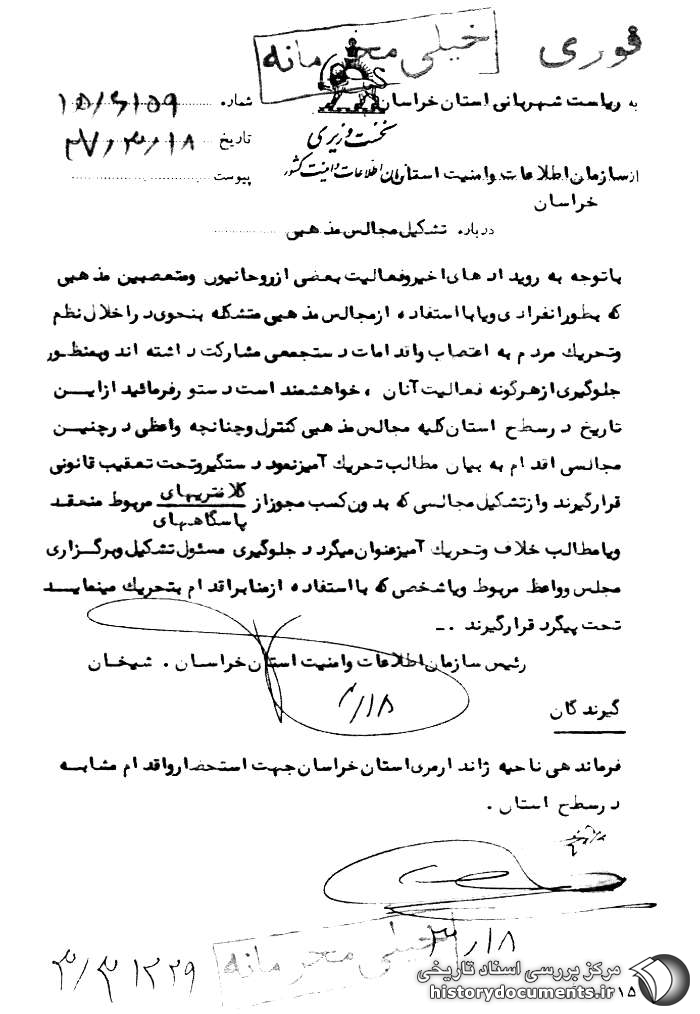 فوری
خیلی محرمانه
به ریاست شهربانی استان خراسان
شماره ۱۵/۶۱۵۹
نخست وزیری
تاریخ ۳۷/۳/۱۸
از سازمان اطلاعات و امنیت استان
سازمان اطلاعات و امنیت کشور
پیوست
خراسان
درباره تشکیل مجالس مذهبی
باتوجه به رویدادهای اخیر و فعالیت بعضی از روحانیون و متعصبین مذهبی
که بطور انفرادی و یا با استفاده از مجالس مذهبی متشکله بنحوی در اخلال نظم
و تحریك مردم به اعتصاب و اقدامات دستجمعی مشارکت داشته اند و بمنظور
جلوگیری از هرگونه فعالیت آنان ، خواهشمند است دستور فرمائید از این
تاریخ در سطح استان کلیه مجالس مذهبی کنترل و چنانچه واعظی در چنین
مجالسی اقدام به بیان مطالب تحریك آمیز نمود دستگیر و تحت تعقیب قانونی
قرار گیرند و از تشکیل مجالسی که بدون کسب مجوز از کلانتریهای مربوط منعقد
پاسگاههای
و یا مطالب خلاف و تحریك آمیز عنوان میگردد جلوگیری مسئول تشکیل و برگزاری
مجلس و واعظ مربوط و یا شخصی که با استفاده از منابر اقدام بتحریك مینماید
تحت پیگرد قرار گیرند .ـ
رئیس سازمان اطلاعات و امنیت استان خراسان . شیخان
۳/۱۸
گیرندگان
فرماندهی ناحیه ژاندارمری استان خراسان جهت استحضار و اقدام مشابه
در سطح استان .
۳/۱۸
خیلی محرمانه
۳/۳۱۲۲۹
مرکز بررسی اسناد تاریخی
historydocuments.ir
۱۵